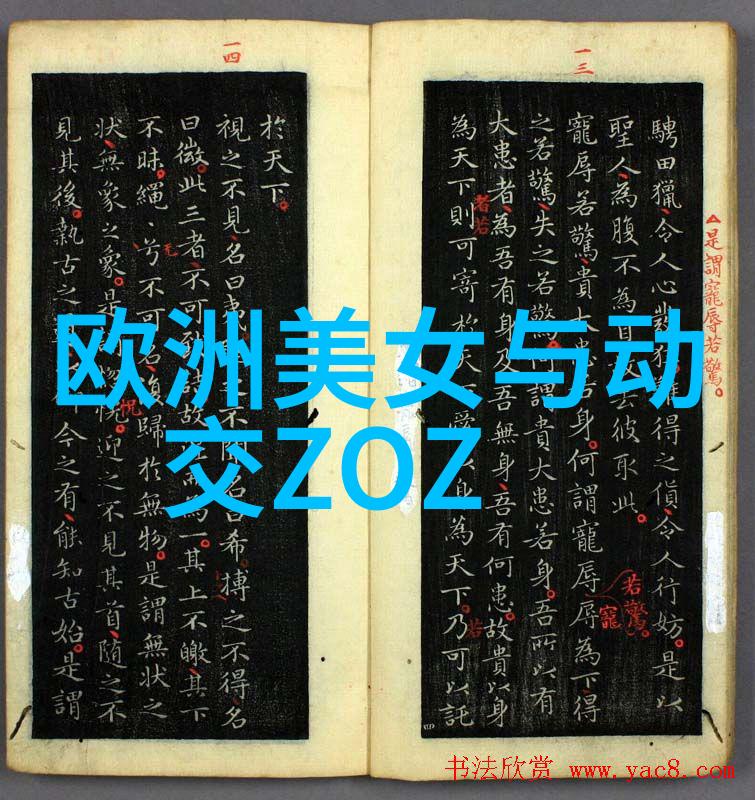 欧洲美女与动
交ZOZ
一三
騁田獵。令人心發狂。得之貨。令人行妨。是以
聖人為腹不為去彼取此。
寵辱若驚。貴大患若身。何謂寵辱。辱為下。得
之若驚。失之若驚。謂貴大患若身。吾所以有
大患者。為吾有身。及吾無身。吾有何患。故貴以身
為天下。則可寄於天下。愛以身為天下。乃可以託
△是謂寵辱若驚。
者若
若驚。
寵
若
一四
於天下。
視之不見。名曰夷。之不聞。名曰希。搏之不得。名
曰微。此三者。不可致詰。故而為一。其上不皦。其下
不昧。繩〻兮不可名。復歸於無物。是謂無狀之
狀。無象之象。是惚恍。迎之不見其首。隨之不
見其後。執古之今之有。能知古始。是謂
恍
书法欣赏 www.yac8.com